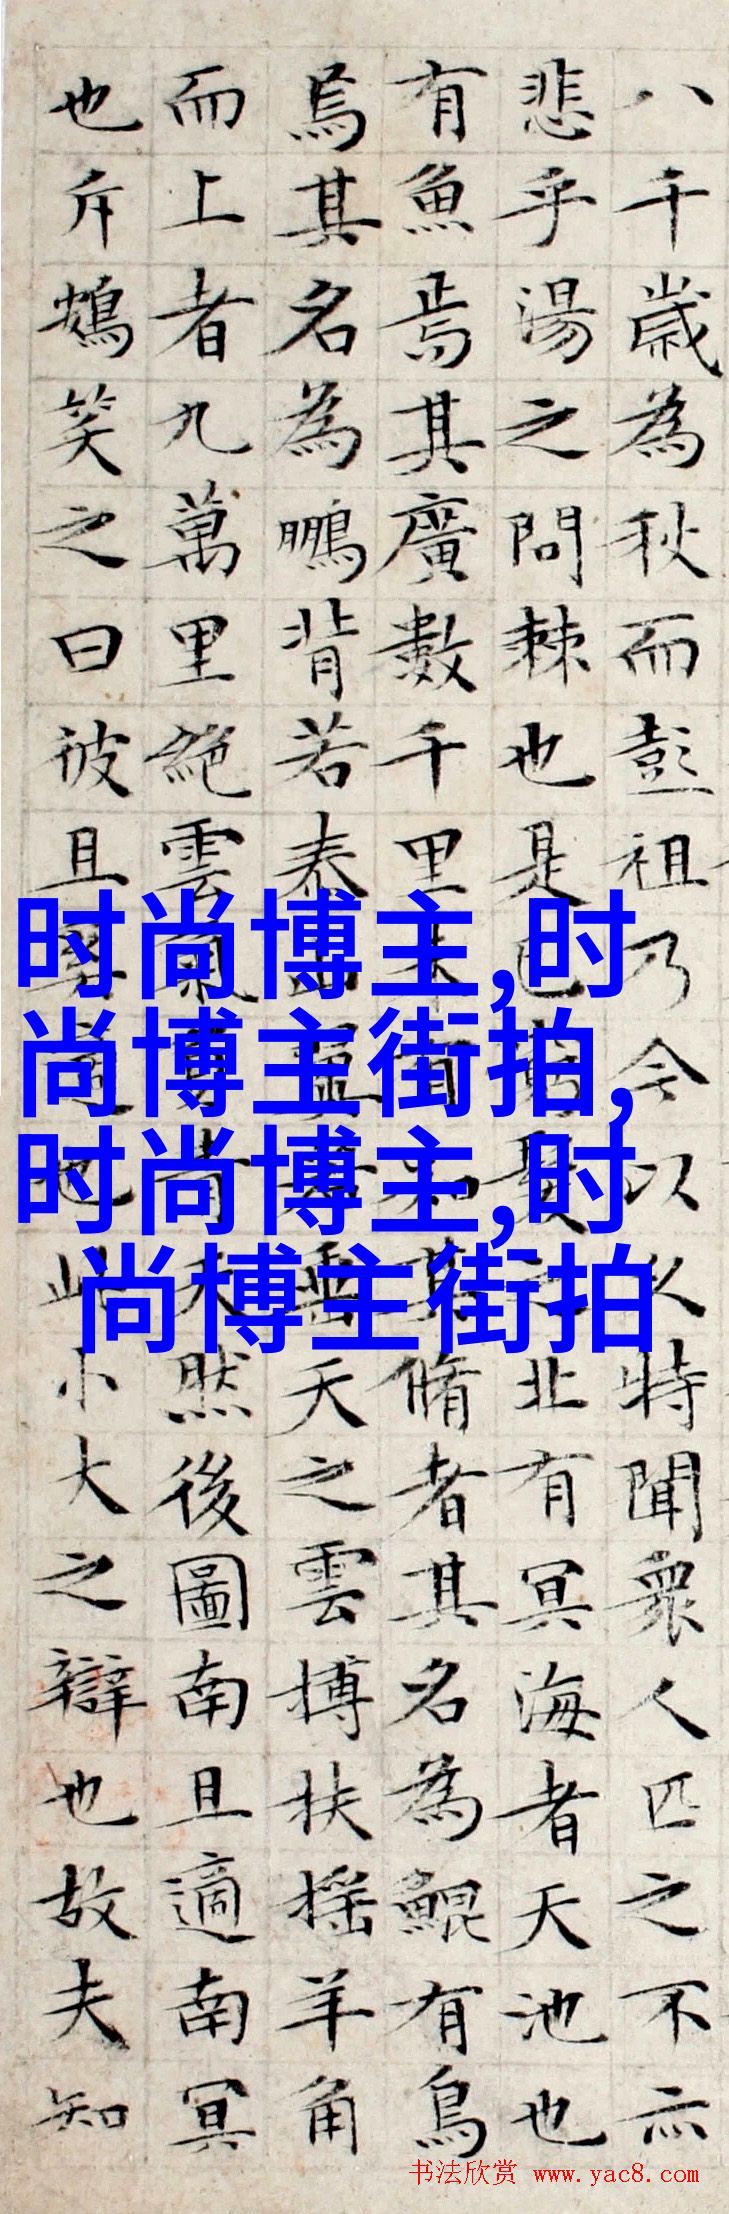 八千歲為秋而彭祖乃今以久特聞衆人匹之不亦
悲乎湯之問棘也是已窮髮之北有冥海者天池也
有魚焉其廣數千里未有知其脩者其名為鯤有鳥
焉其名為鵬背若泰山翼若垂天之雲搏扶搖羊角
而上者九萬里絕雲氣負青天然後圖南且適南冥
也斥鴳笑之曰彼且奚適也此小大之辯也故夫知
时尚博主,时
尚博主街拍,
时尚博主,时
尚博主街拍
书法欣赏 www.yac8.com